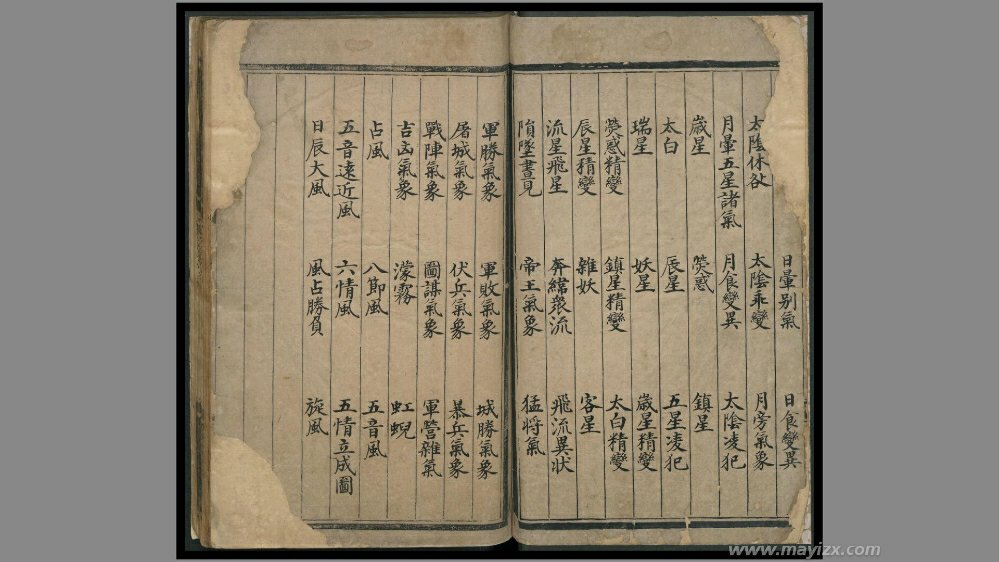 日暈别氣 日食變異
太陰休咎 太陰乘變 月旁氣象
月暈五星諸氣 月食變異 太陰凌犯
歲星 熒惑 鎮星
太白 辰星 五星凌犯
瑞星 妖星 歲星精變
熒惑精變 鎮星精變 太白精變
辰星精變 雜妖 客星
流星飛星 奔䌓衆流 飛流異狀
隕墜晝見 帝王氣象 猛将氣
軍勝氣象 軍敗氣象 城勝氣象
屠城氣象 伏兵氣象 暴兵氣象
戰陣氣象 圖謀氣象 軍營雜氣
吉凶氣象 濛霧 虹蜺
占風 八節風 五音風
五音遠近風 六情風 五情立成圖
日辰大風 風占勝負 旋風
www.mayizx.com